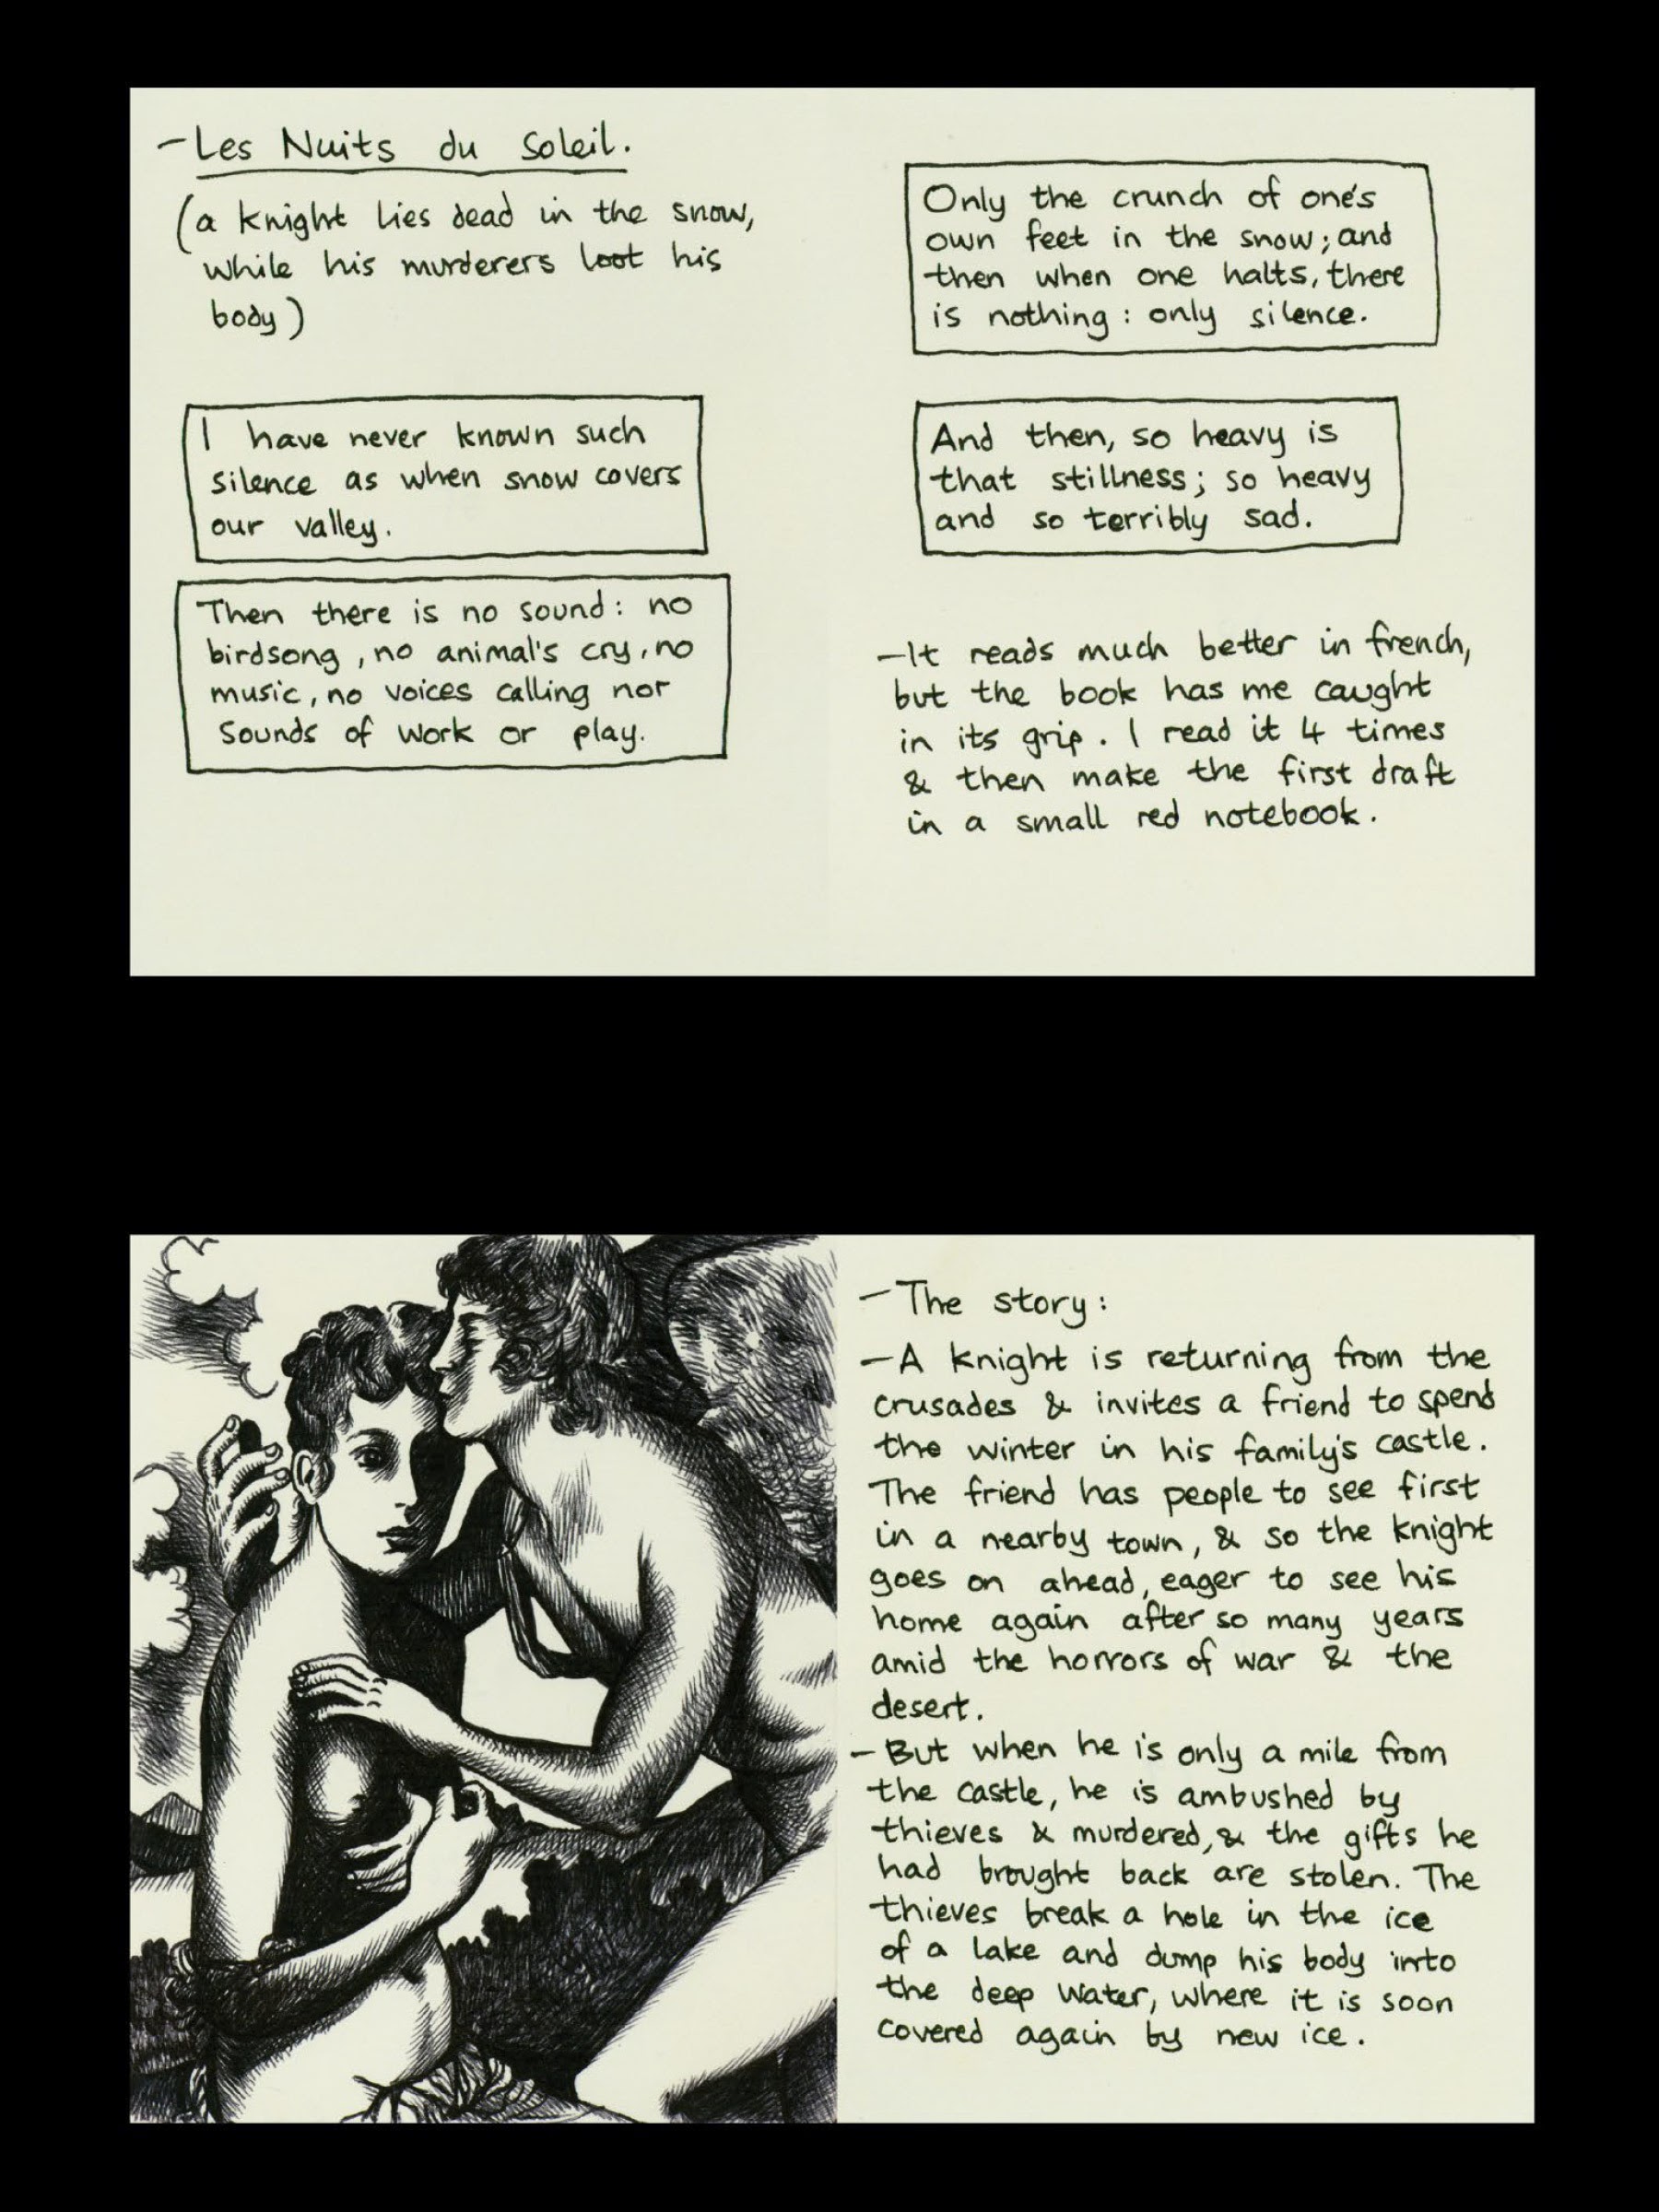 - Les Nuits du Soleil.
(a knight lies dead in the snow,
while his murderers loot his
body)
I have never known such
silence as when snow covers
our valley.
Then there is no sound: no
birdsong, no animal's cry, no
music, no voices calling nor
sounds of work or play.
Only the crunch of one's
own feet in the snow; and
then when one halts, there
is nothing: only silence.
And then, so heavy is
that stillness; so heavy
and so terribly sad.
- It reads much better in french,
but the book has me caught
in its grip. I read it 4 times
& then make the first draft
in a small red notebook.
- The story:
- A knight is returning from the
crusades & invites a friend to spend
the winter in his family's castle.
The friend has people to see first
in a nearby town, & so the knight
goes on ahead, eager to see his
home again after so many years
amid the horrors of war & the
desert.
- But when he is only a mile from
the castle, he is ambushed by
thieves & murdered, & the gifts he
had brought back are stolen. The
thieves break a hole in the ice
of a lake and dump his body into
the deep water, where it is soon
covered again by new ice.